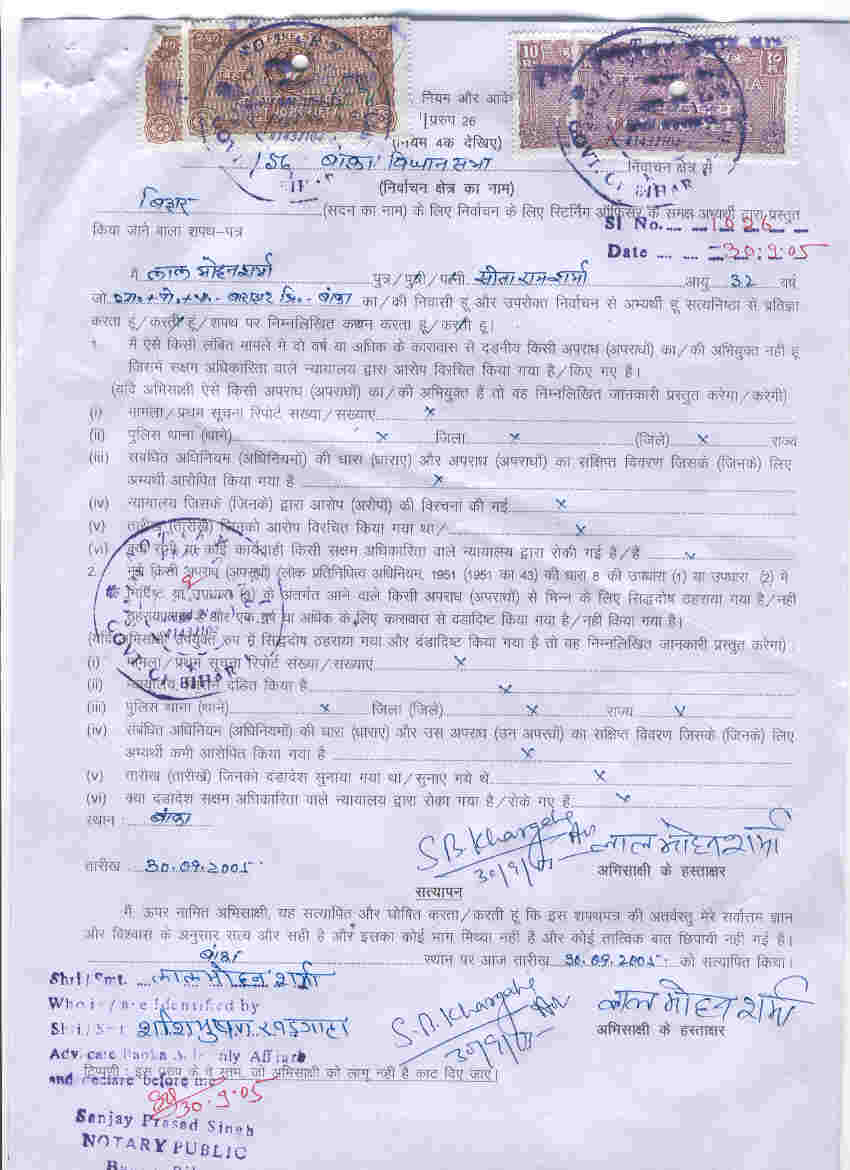 2.50
10
१०
नियम और आदेश
प्ररुप 26
(नियम 4क देखिए)
156 बांका विधान सभा निर्वाचन क्षेत्र से
(निर्वाचन क्षेत्र का नाम)
बिहार (सदन का नाम) के लिए निर्वाचन के लिए रिटर्निंग ऑफिसर के समक्ष अभ्यर्थी द्वारा प्रस्तुत
किया जाने बाला शपथ-पत्र
Sl No. 1026
Date 30.9.05
मैं लाल मोहन शर्मा पुत्र/पुत्री/पत्नी सीता राम शर्मा आयु 32 वर्ष
जो बांका का/की निवासी हूं और उपरोक्त निर्वाचन से अभ्यर्थी हूं सत्यनिष्ठा से प्रतिज्ञा
करता हूं/करती हूं/शपथ पर निम्नलिखित कथन करता हूं/करती हूं।
1. मैं ऐसे किसी लंबित मामले में दो वर्ष या अधिक के कारावास से दंडनीय किसी अपराध (अपराधों) का/की अभियुक्त नही हूं
जिसमें सक्षम अधिकारिता वाले न्यायालय द्वारा आरोप विरचित किया गया है/किए गए है।
(यदि अभिसाक्षी ऐसे किसी अपराध (अपराधों) का/की अभियुक्त है तो वह निम्नलिखित जानकारी प्रस्तुत करेगा/करेगी)
(i) मामला/प्रथम सूचना रिपोर्ट संख्या/संख्याएं x
(ii) पुलिस थाना (थाने) x जिला x (जिले) x राज्य
(iii) संबंधित अधिनियम (अधिनियमों) की धारा (धाराएं) और अपराध (अपराधों) का संक्षिप्त विवरण जिसके (जिनके) लिए
अभ्यर्थी आरोपित किया गया है x
(iv) न्यायालय जिसके (जिनके) द्वारा आरोप (अरोपों) की विरचना की गई x
(v) तारीख (तारीखें) जिनको आरोप विरचित किया गया था/ x
(vi) क्या सभी या कोई कार्यवाही किसी सक्षम अधिकारिता वाले न्यायालय द्वारा रोकी गई है/है x
2. मुझे किसी अपराध (अपराधों) (लोक प्रतिनिधित्व अधिनियम, 1951 (1951 का 43) की धारा 8 की उपधारा (1) या उपधारा (2) में
निर्दिष्ट या उपधारा (3) के अंतर्गत आने वाले किसी अपराध (अपराधों) से भिन्न के लिए सिद्धदोष ठहराया गया है/नहीं
ठहराया गया है और एक वर्ष या अधिक के लिए कारावास से दंडादिष्ट किया गया है/नहीं किया गया है।
(यदि अभिसाक्षी उपर्युक्त रुप से सिद्धदोष ठहराया गया और दंडादिष्ट किया गया है तो वह निम्नलिखित जानकारी प्रस्तुत करेगा)
(i) मामला/प्रथम सूचना रिपोर्ट संख्या/संख्याएं x
(ii) न्यायालय जिसने दंडित किया है x
(iii) पुलिस थाना (थाने) x जिला (जिले) x राज्य x
(iv) संबंधित अधिनियम (अधिनियमों) की धारा (धाराएं) और उस अपराध (उन अपराधों) का संक्षिप्त विवरण जिसके (जिनके) लिए
अभ्यर्थी कमी आरोपित किया गया है x
(v) तारीख (तारीखें) जिनको दंडादेश सुनाया गया था/सुनाए गये थे x
(vi) क्या दंडादेश सक्षम अधिकारिता वाले न्यायालय द्वारा रोका गया है/रोके गए है x
स्थान : बांका
S.B. Khargaha लाल मोहन शर्मा
तारीख : 30.09.2005 अभिसाक्षी के हस्ताक्षर
सत्यापन
मैं, ऊपर नामित अभिसाक्षी, यह सत्यापित और घोषित करता/करती हूं कि इस शपथपत्र की अंतर्वस्तु मेरे सर्वोत्तम ज्ञान
और विश्वास के अनुसार सत्य और सही है और इसका कोई भाग मिथ्या नहीं है और कोई तात्विक बात छिपायी नहीं गई है।
बांका स्थान पर आज तारीख 30.09.2005 को सत्यापित किया।
Shri/Smt. लाल मोहन शर्मा
Who is/are Identified by
Shri/Smt शशिभूषण खड़गाहा
S.B. Khargaha लाल मोहन शर्मा
अभिसाक्षी के हस्ताक्षर
Advocate Banka Solemnly Affirm
and declare before me
टिप्पणी : इस प्ररुप के वे स्तम, जो अभिसाक्षी को लागू नहीं है काट दिए जाएं।
30.9.05
Sanjay Prasad Singh
NOTARY PUBLIC
NOTARY
GOVT. OF BIHAR